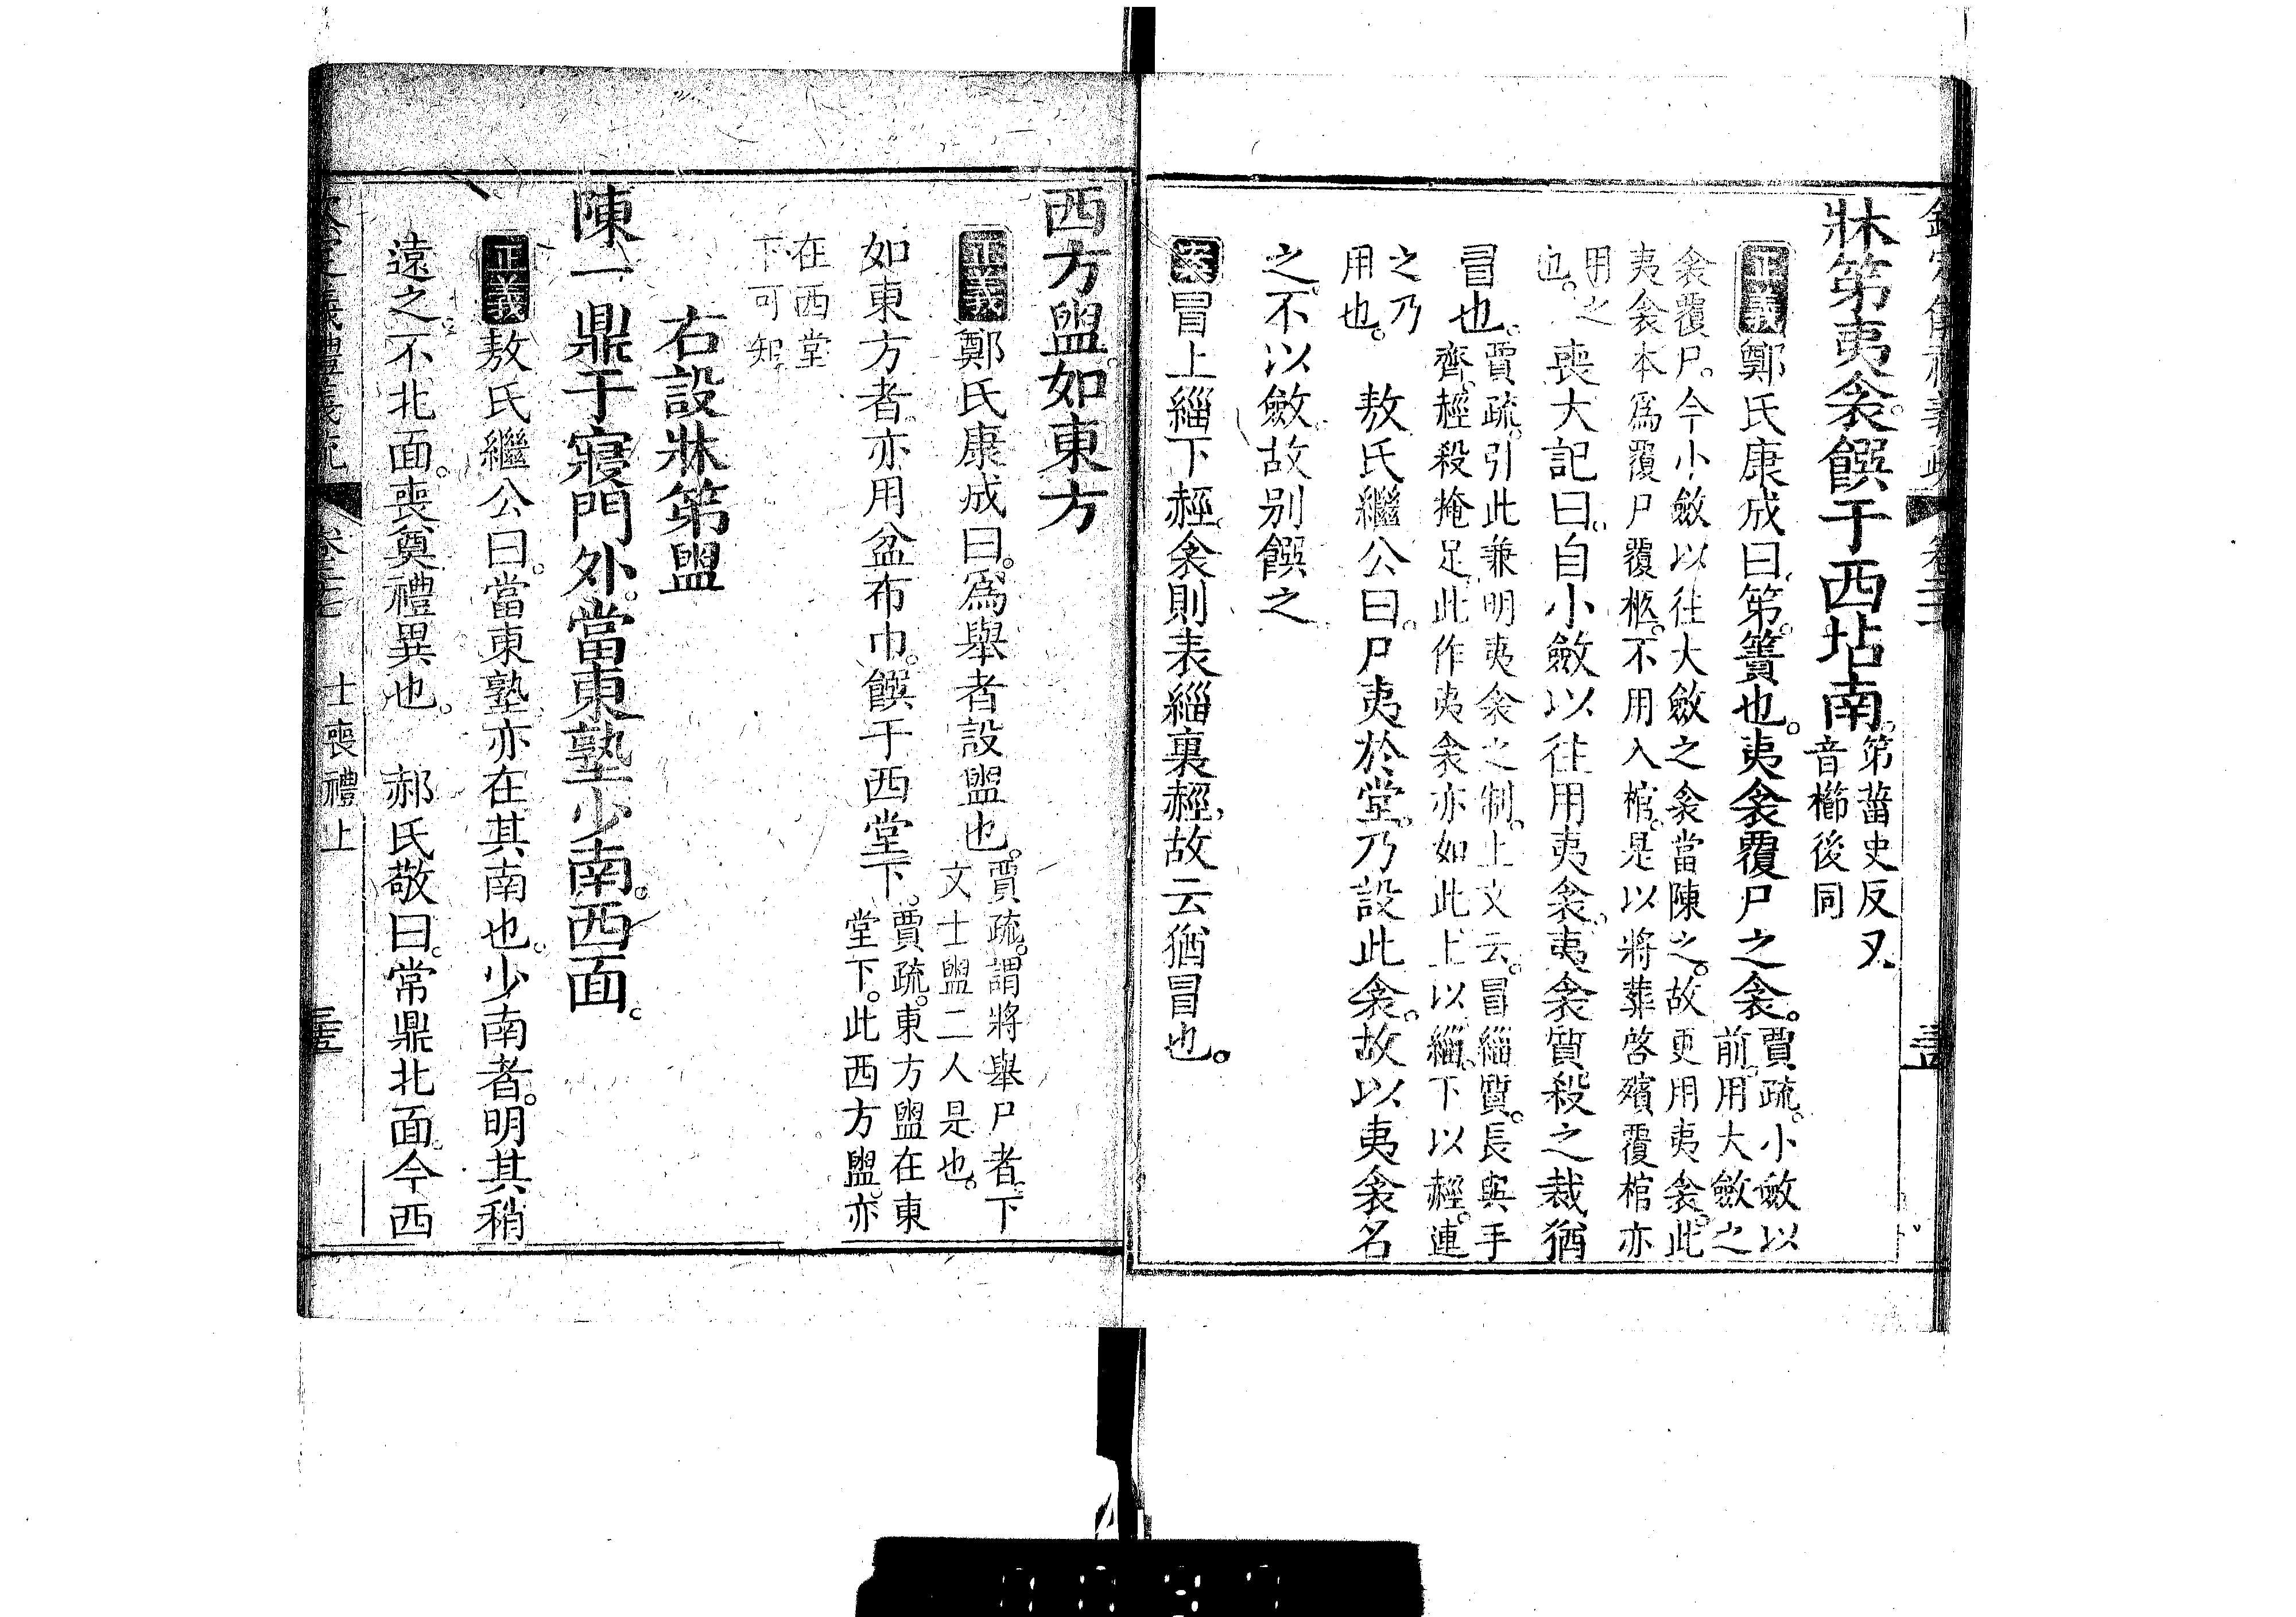 牀笫夷衾饌于西坫南。笫菑史反又
音櫛後同
正義鄭氏康成曰笫簀也。夷衾覆尸之衾。賈疏。小斂以
前。用大斂之
衾覆尸。今小斂以往大斂之衾當陳之。故更用夷衾。此
夷衾本爲覆尸覆柩。不用入棺。是以將葬啓殯覆棺亦
用之
也。喪大記曰。自小斂以往用夷衾。夷衾質殺之裁猶
冒也。賈疏。引此兼明夷衾之制。上文云。冒緇質。長與手
齊。䞓殺掩足。此作夷衾亦如此上以緇。下以䞓。連
之乃
用也。敖氏繼公曰。尸夷於堂。乃設此衾。故以夷衾名
之。不以斂。故别饌之
案冒上緇下䞓。衾則表緇裏䞓。故云猶冒也。
西方盥。如東方
正義鄭氏康成曰。爲舉者設盥也。賈疏。謂將舉尸者。下
文士盥二人是也。
如東方者。亦用盆布巾。饌于西堂下。賈疏。東方盥在東
堂下。此西方盥。亦
在西堂
下可知
右設牀笫盥
陳一鼎于寢門外。當東塾少南。西面。
正義敖氏繼公曰。當東塾。亦在其南也。少南者。明其稍
遠之。不北面。喪奠禮異也。郝氏敬曰。常鼎北面。今西
士喪禮上